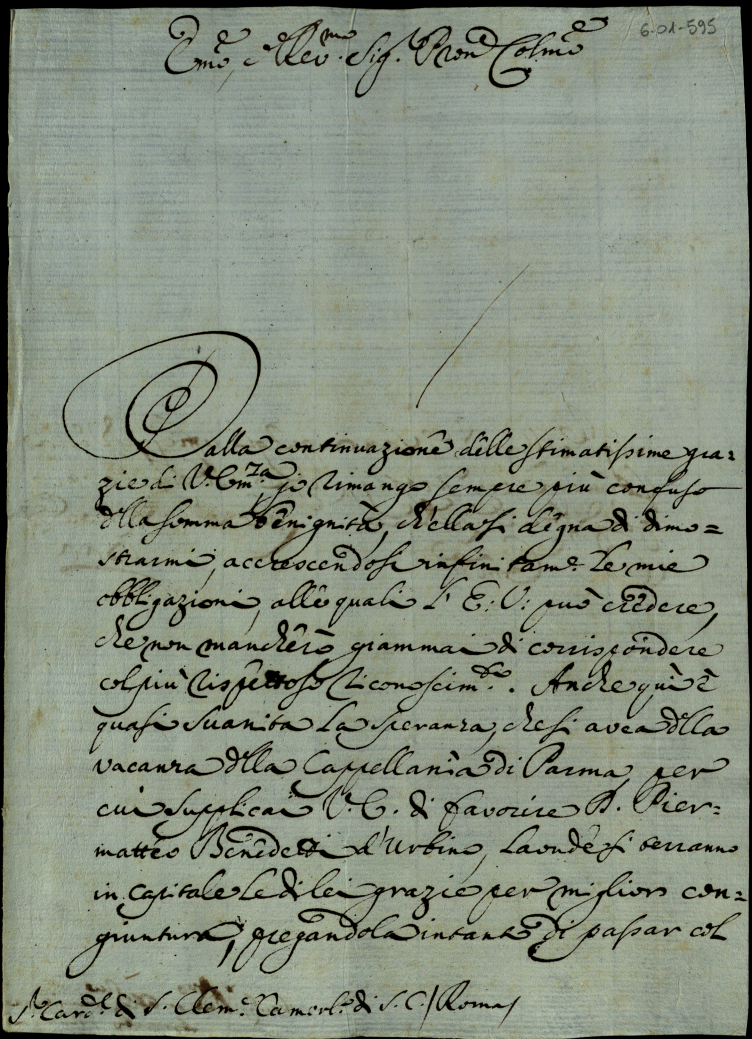 6.01-595
Emo, e Revmo Sigr Pron Colmo
Dalla continuazione delle stimatissime gra=
zie di V. Emza io rimango sempre più confuso
dlla somma benignità, ch'ella si degna di dimo=
strarmi, accrescendosi infinitame le mie
obbligazioni, alle quali l'E: V: può credere,
che non mancherò giammai di corrispondere
col più rispettoso riconoscimto. Anche quì è
quasi svanita la speranza, che si avea dlla
vacanza dlla Cappellania di Parma, per
cui supplicai V. E. di favorire D. Pier=
matteo Benedetti d'Urbino, laonde si terranno
in capitale le di lei grazie per miglior con=
giuntura, pregandola intanto di passar col
Sr Cardl di S. Cleme Camerlo di S. C. / Roma /